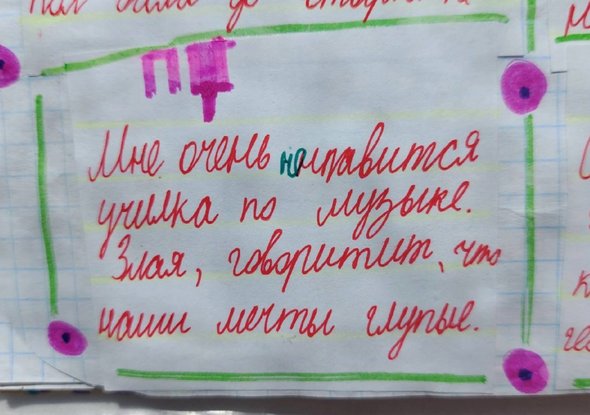 Мне очень не нравится
училка по музыке.
Злая, говоритит, что
наши мечты глупые.